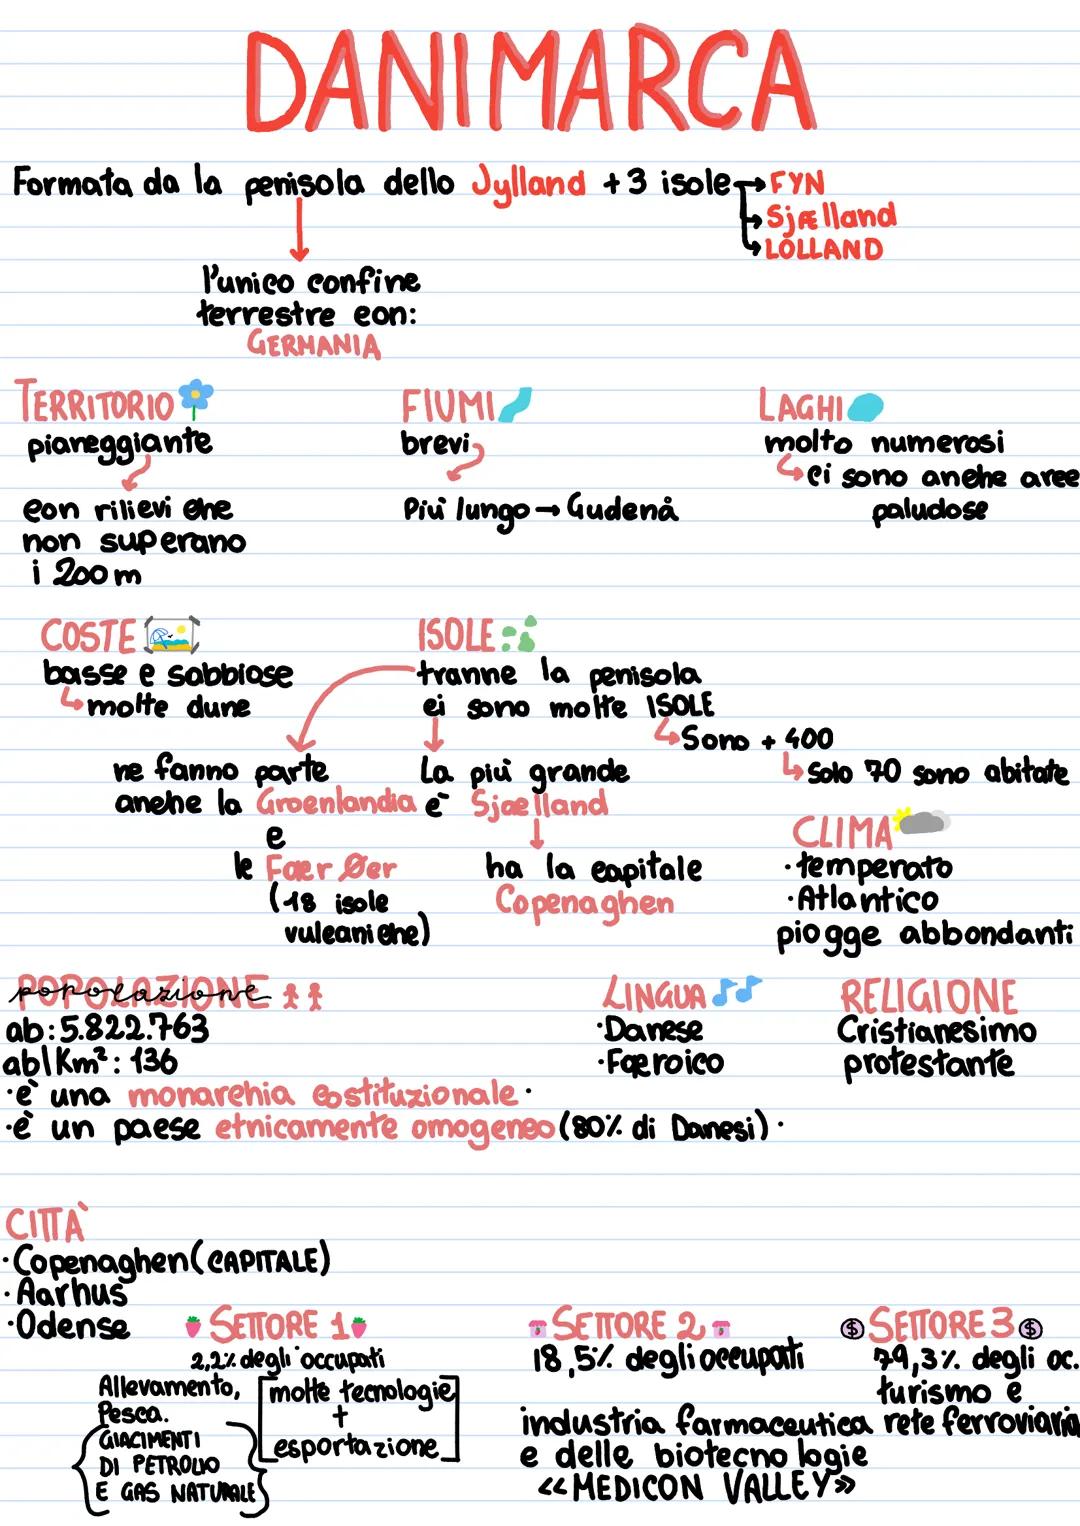 DANIMARCA
Formata da la penisola dello Jylland + 3 isole → FYN
→ Sjælland
→ LOLLAND
l'unico confine
terrestre con:
GERMANIA
TERRITORIO
pianeggiante
con rilievi che
non superano
i 200 m
FIUMI
brevi
Più lungo → Gudenå
LAGHI
molto numerosi
ci sono anche aree
paludose
COSTE
basse e sabbiose
molte dune
ISOLE
tranne la penisola
ci sono molte ISOLE
Sono + 400
Solo 70 sono abitate
ne fanno parte
anche la Groenlandia
e
le Fær Øer
(18 isole
vulcaniche)
La più grande
è Sjælland
ha la capitale
Copenaghen
CLIMA
· temperato
· Atlantico
piogge abbondanti
POPOLAZIONE
popolazione
ab: 5.822.763
ab/Km²: 136
· è una monarchia costituzionale ·
· è un paese etnicamente omogeneo (80% di Danesi) ·
LINGUA
· Danese
· Færoico
RELIGIONE
Cristianesimo
protestante
CITTÀ
· Copenaghen (CAPITALE)
· Aarhus
· Odense
SETTORE 1
2,2% degli occupati
Allevamento,
Pesca.
GIACIMENTI
DI PETROLIO
E GAS NATURALE
molte tecnologie
+
esportazione
SETTORE 2
18,5% degli occupati
industria farmaceutica
e delle biotecno logie
<< MEDICON VALLEY >>
SETTORE 3
79,3% degli oc.
turismo e
rete ferroviaria